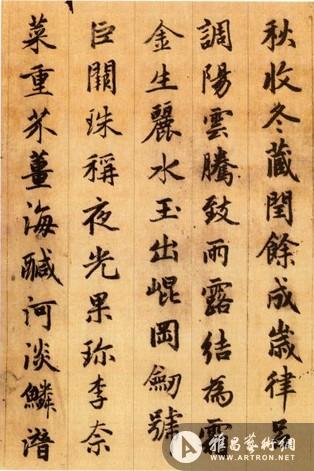 秋收冬藏閏餘成歲律呂
調陽雲騰致雨露結為霜
金生麗水玉出崐岡劒號
巨闕珠稱夜光果珍李奈
菜重芥薑海醎河淡鱗潛
雅昌藝術網
WWW.ARTRON.NET